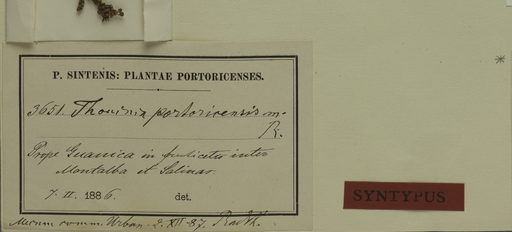 P. SINTENIS: PLANTAE PORTORICENSES.
3651. Thouinia portoricensis m.
R.
Prope Guanica in fruticetis inter
Montalba et Salinas
7. II. 1886. det.
comm. Urban 2. XII 87. Radlk.
SYNTYPUS
*